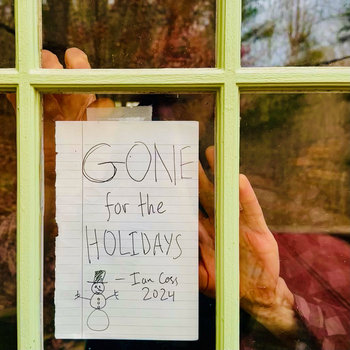 GONE
for the
HOLIDAYS
— Ian Coss
2024